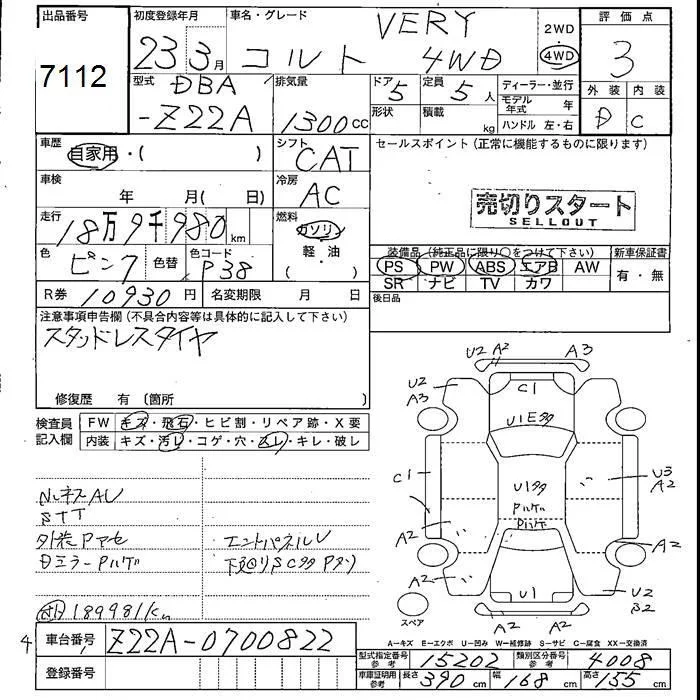 出品番号 初度登録年月 車名・グレード VERY 2WD 評価点
7112 23年3月 コルト 4WD 4WD 3
型式 DBA 排気量 ドア 5 定員 5人 ディーラー・並行 外装 内装
-Z22A 1300cc 形状 積載 kg モデル年式 年 D C
ハンドル 左・右
車歴 自家用・( ) シフト CAT セールスポイント(正常に機能するものに限ります)
車検 年 月( 日) 冷房 AC 売切りスタート
SELLOUT
走行 18万9千980km 燃料 ガソリン
軽・油
( )
色 ピンク 色替 色コード P38 装備品(純正品に限り○をつけて下さい) 新車保証書
PS PW ABS エアB AW 有・無
SR ナビ TV カワ
R券 10930円 名変期限 月 日 後日品
注意事項申告欄(不具合内容等は具体的に記入して下さい)
スタッドレスタイヤ
修復歴 有〔箇所
検査員 FW キズ・飛石・ヒビ割・リペア跡・X要
記入欄 内装 キズ・汚レ・コゲ・穴・スレ・キレ・破レ
U2 A2 A3
U2
A3 C1
U1
C1 U1 U3
A2
A2 A2
A2 U1 U2
B2
A2 A2
スペア
外装
エンドパネルU
189981km
A-キズ E-エクボ U-凹み W-補修跡 S-サビ C-腐食 XX-交換済
4 車台番号 Z22A-0700822
型式指定番号 参考 15202 類別区分番号 参考 4008
登録番号 車庫証明用 参考 長さ 390cm 幅 168cm 高さ 155cm